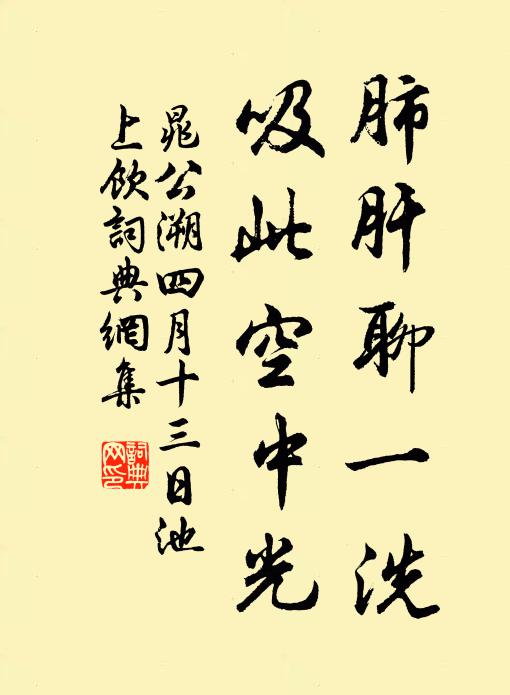 肺肝聊一洗
吸此空中光
晁公溯四月十三日池
上飲詞典網集
詞典
网印